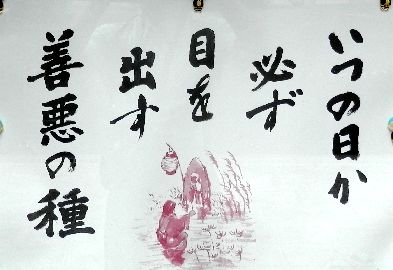 いつの日か
必ず
目を
出す
善悪の種